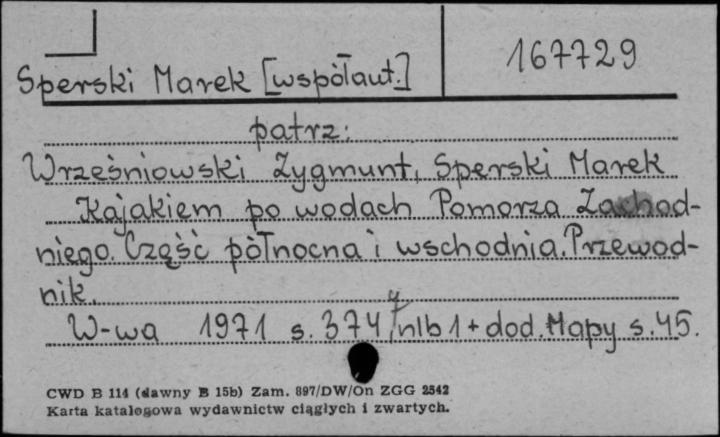 167729
Sperski Marek [współaut.]
patrz:
Wrześniowski Zygmunt, Sperski Marek
Kajakiem po wodach Pomorza Zachod-
niego. Część północna i wschodnia. Przewod-
nik.
W-wa 1971 s. 374, nlb 1 + dod. Mapy s. 45.
CWD B 114 (dawny B 15b) Zam. 897/DW/On ZGG 2542
Karta katalogowa wydawnictw ciągłych i zwartych.